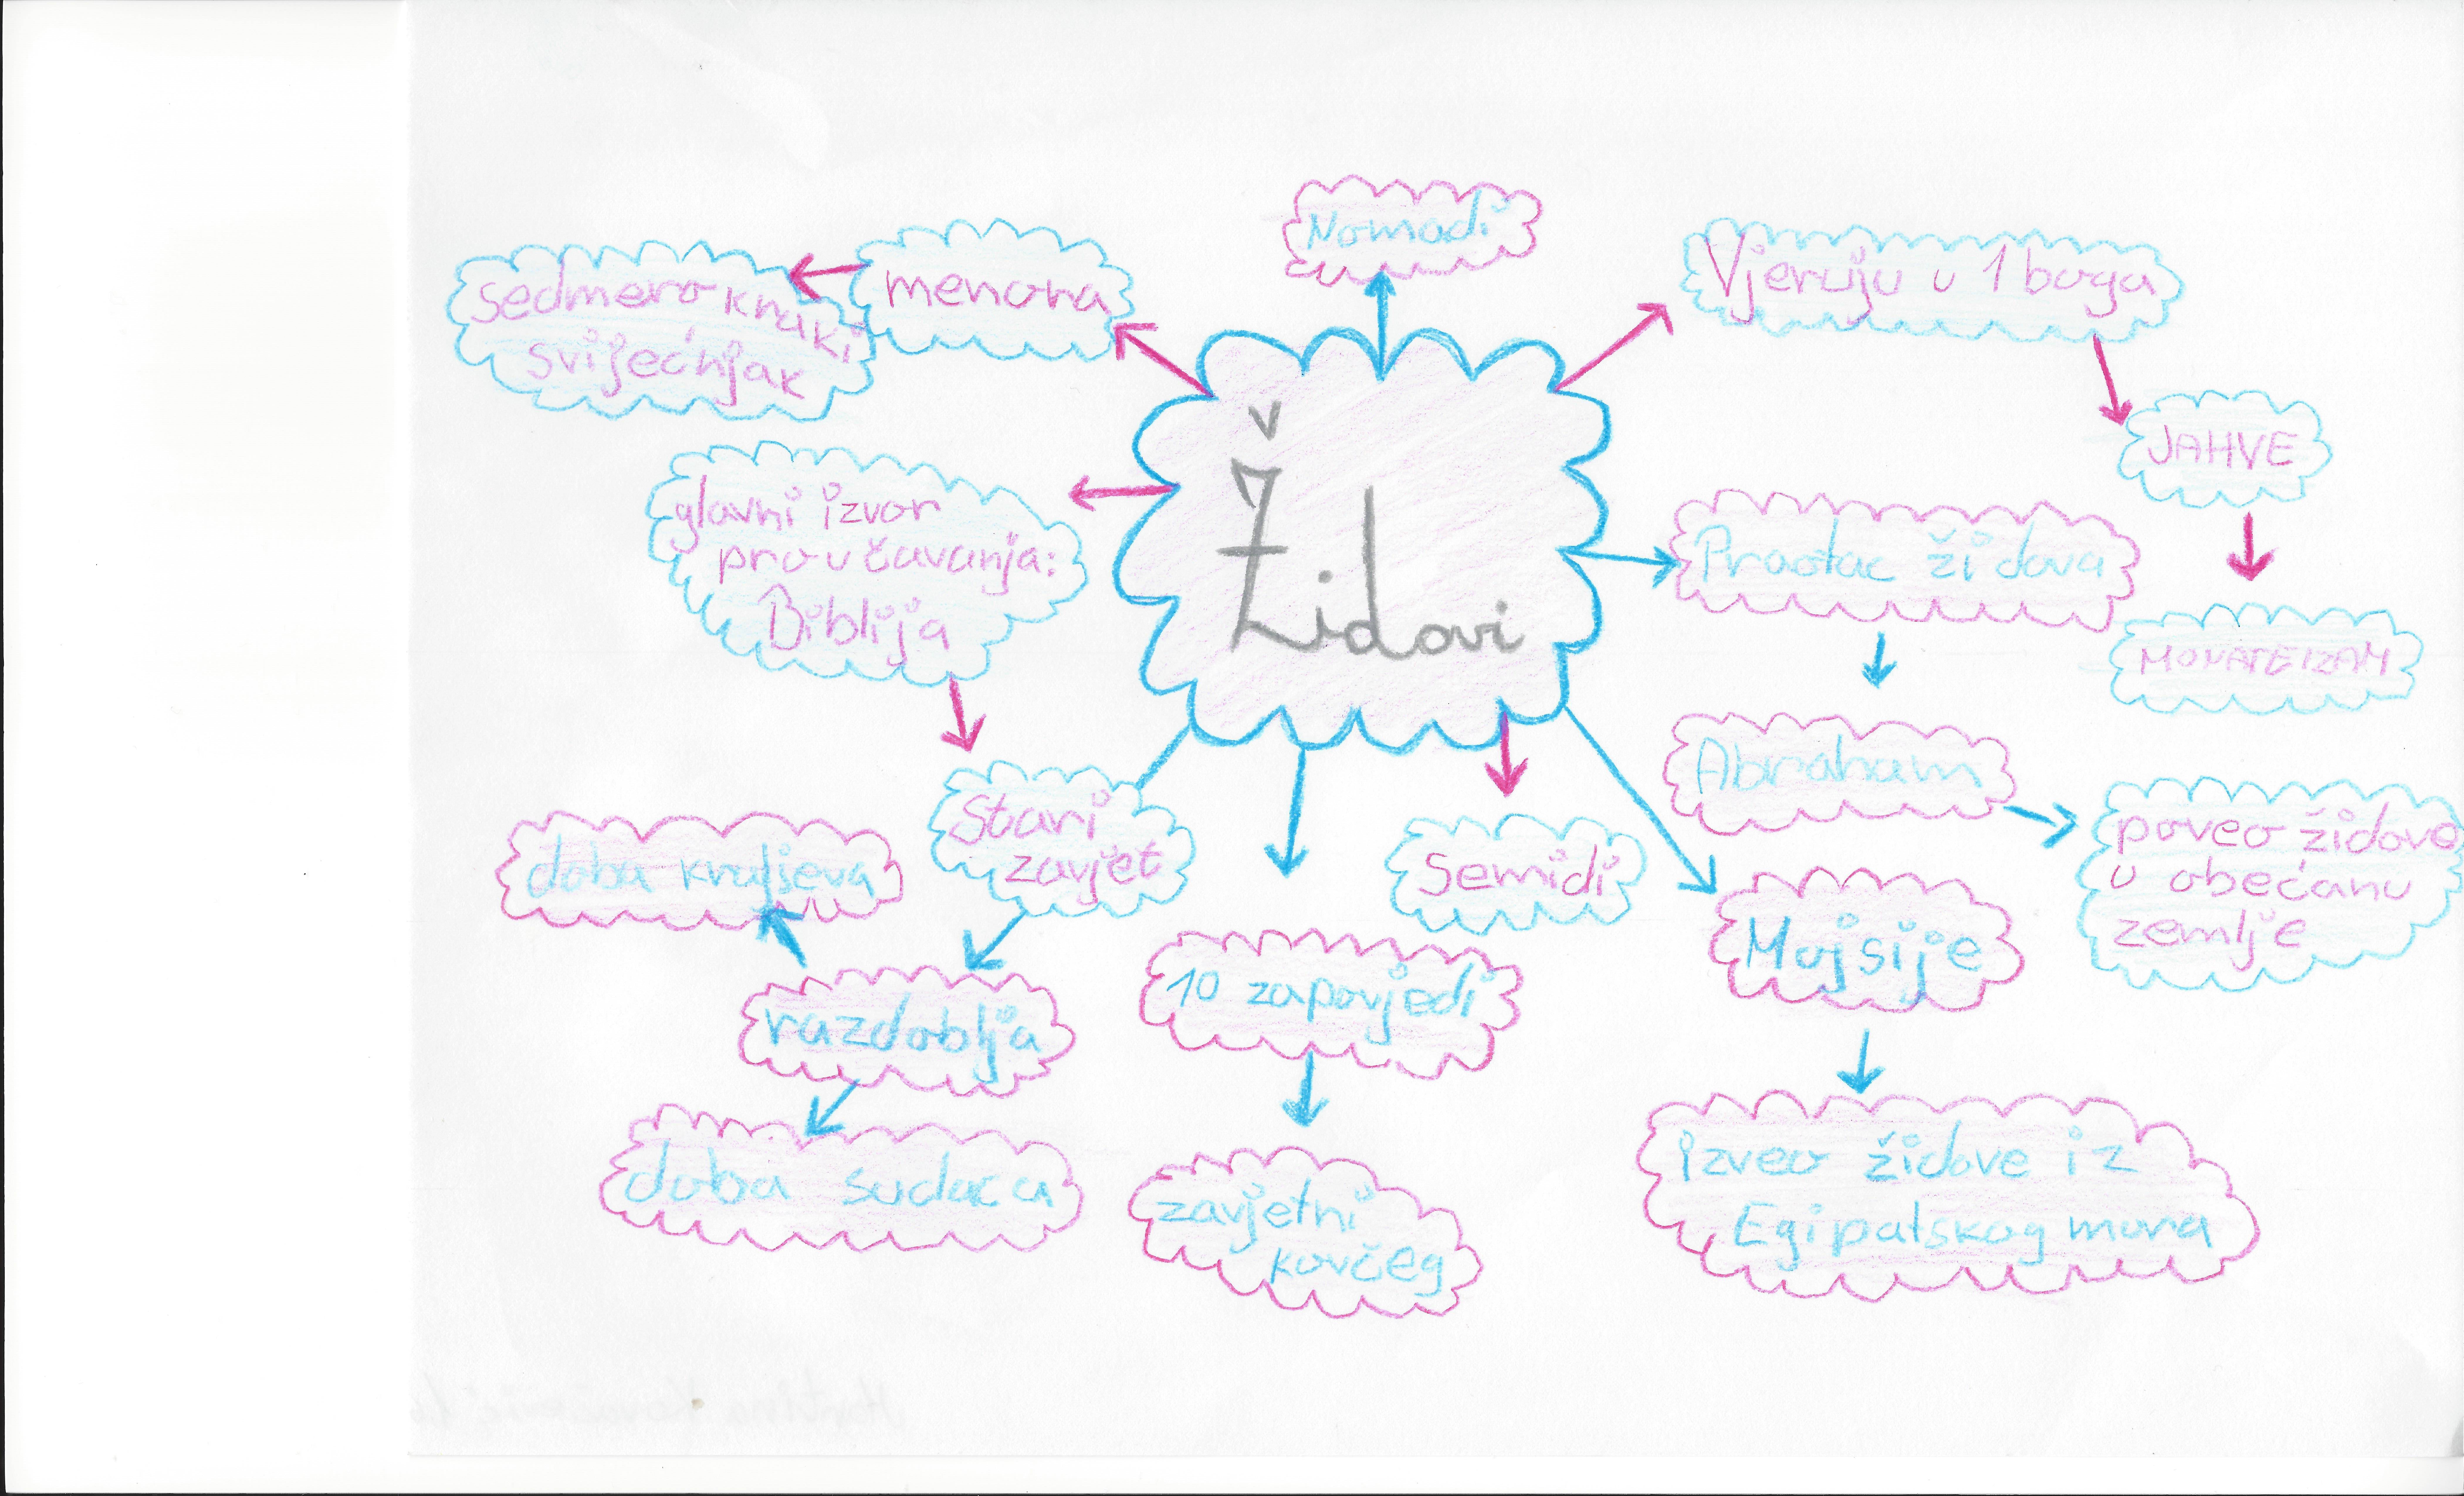 Židovi
Nomadi
menora
sedmerokraki
svijećnjak
glavni izvor
proučavanja:
Biblija
Stari
zavjet
razdoblja
doba kraljeva
doba sudaca
10 zapovjedi
zavjetni
kovčeg
Semidi
Mojsije
izveo židove iz
Egipatskog mora
Praotac židova
Abraham
poveo židove
u obećanu
zemlje
Vjeruju u 1 boga
JAHVE
MONATEIZAM